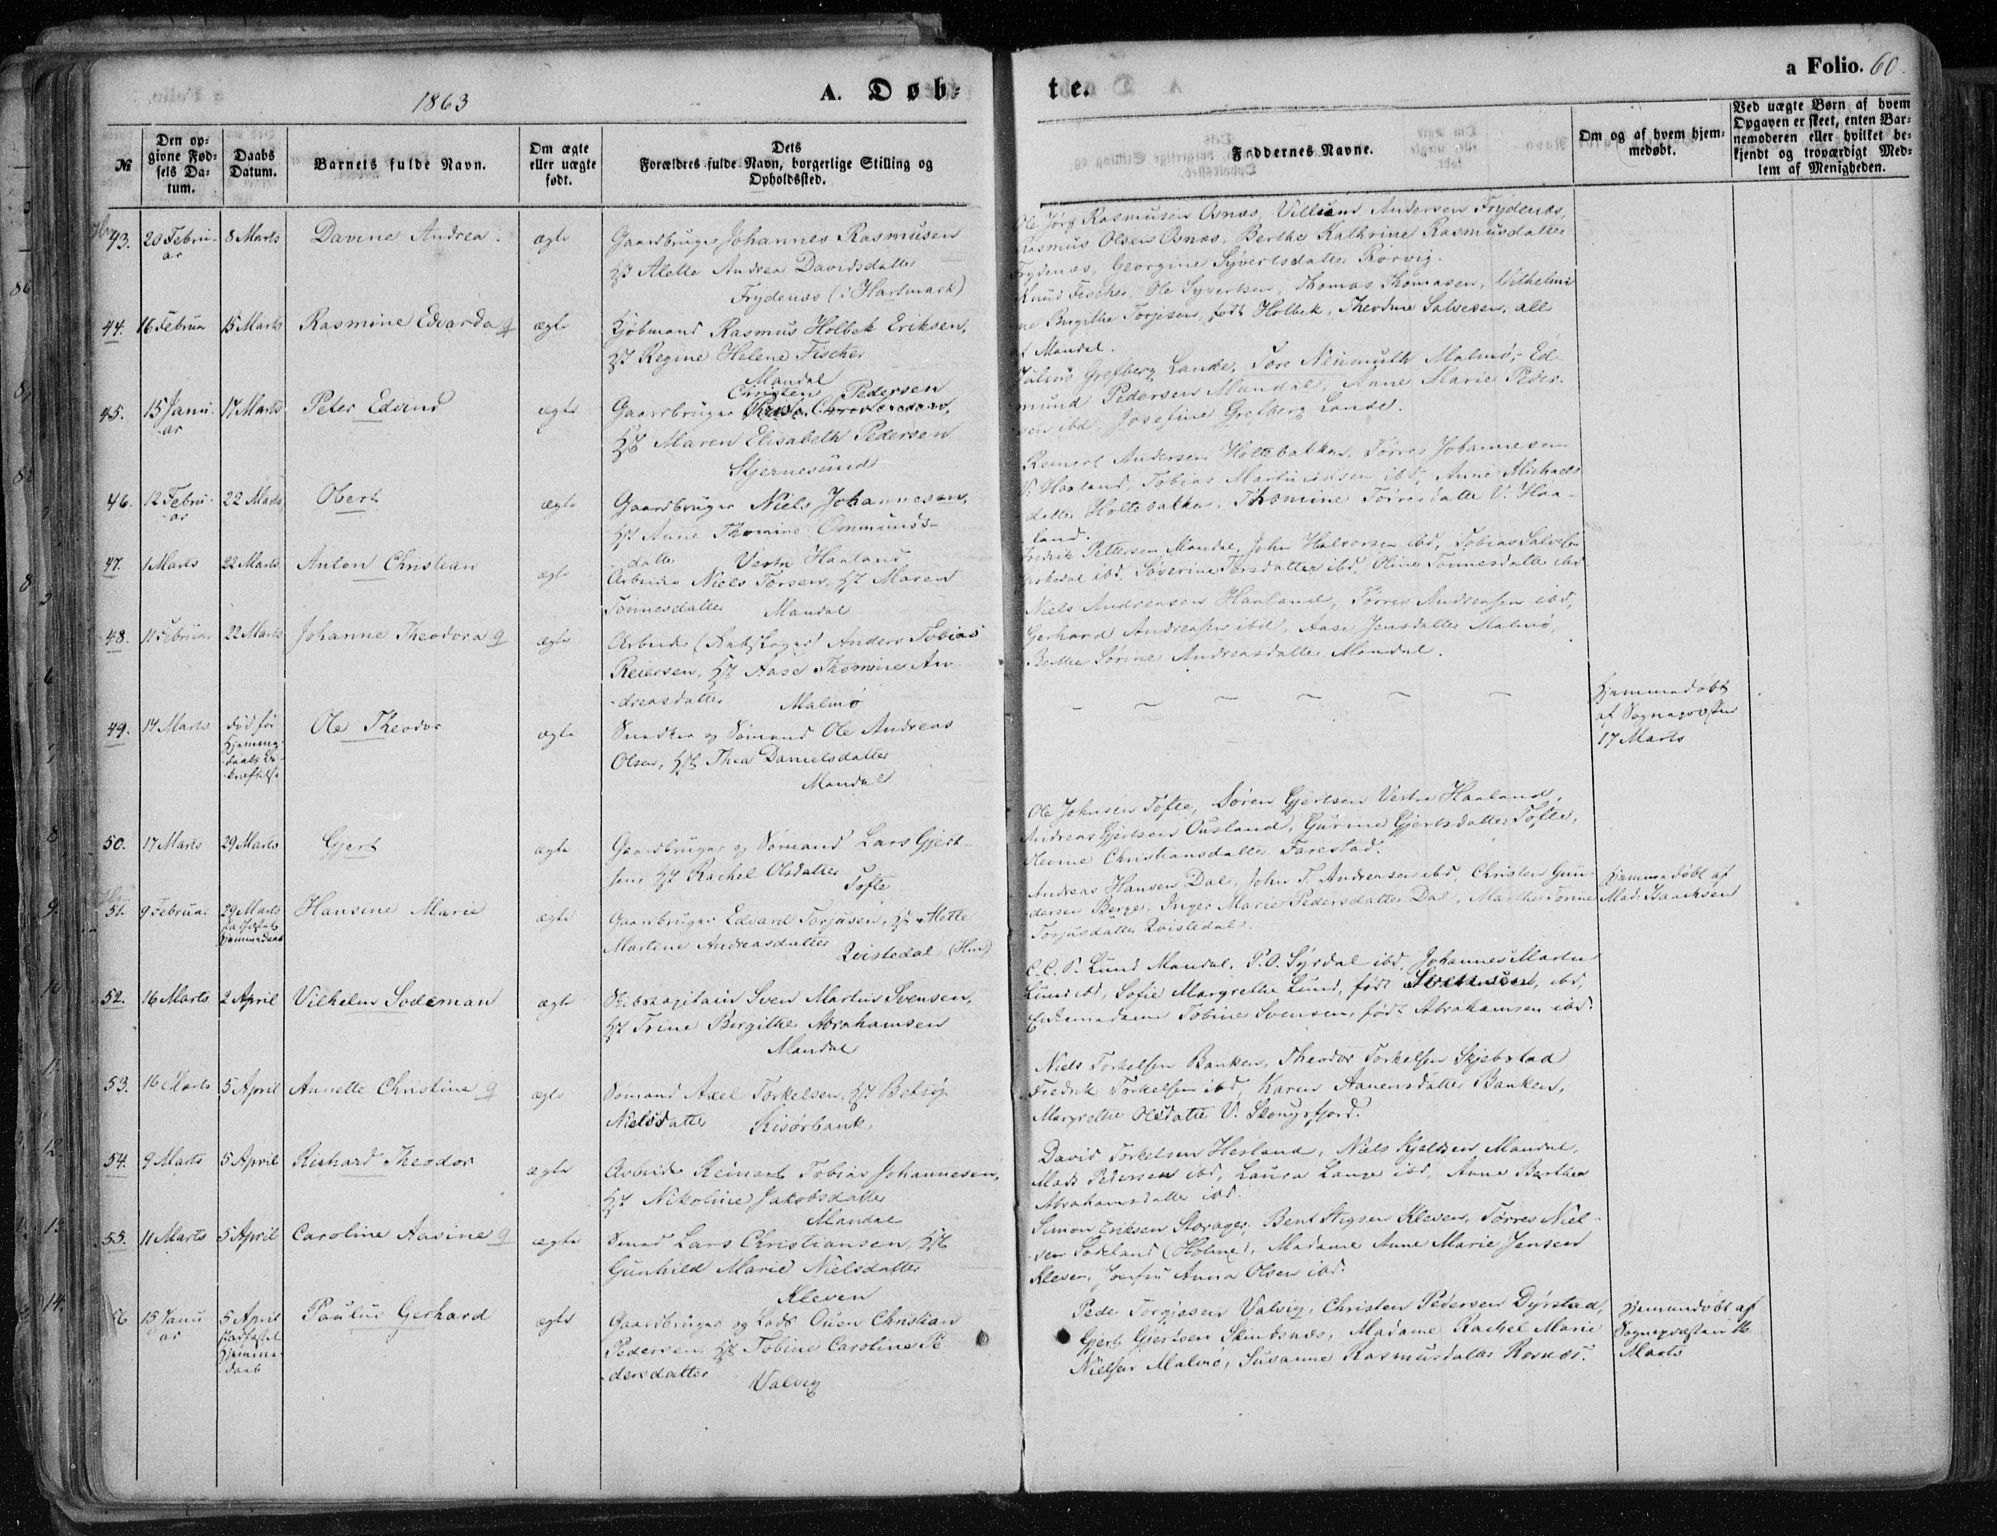 1863
A. Døb-
te.
a Folio. 60.
№
Den op-
givne Fød-
sels Da-
tum.
Daabs
Datum.
Barnets fulde Navn.
Om ægte
eller uægte
født.
Dets
Forældres fulde Navn, borgerlige Stilling og
Opholdssted.
Faddernes Navne.
Om og af hvem hjem-
medøbt.
Ved uægte Børn af hvem
Opgaven er skeet, enten Bar-
nemoderen eller hvilket be-
kjendt og troværdigt Med-
lem af Menigheden.
43.
20 Febru-
ar
8 Marts
Davine Andrea
ægte
Gaardbruger Johannes Rasmusen
Hst Alette Andrea Davidsdatter
Frydenæs (i Hartmark)
Ole Jørg Rasmusen Osnæs, Villum Andersen Frydenæs,
Rasmus Olsen Osnæs, Berthe Kathrine Rasmusdatter
Frydenæs, Georgine Syvertsdatter Rørvig.
44.
16 Februa
15 Marts
Rasmine Edvarda
ægte
Kjøbmand Rasmus Holbek Eriksen,
Hst Regine Helene Fischer
Mandal
Knud Fischer, Ole Syvertsen, Thomas Thomasen, Vilhelmi
ne Birgithe Torjesen, født Holbek, Theodine Salvesen, alle
af Mandal.
45.
15 Janu-
ar
17 Marts
Peter Edvind
ægte
Christen Pedersen
Gaardbruger
Hst Maren Elisabeth Pedersen
Skjernesund
Julius Grefberg Lande, Tore Neumuth Malmø, Ed-
mund Pedersen Mandal, Anne Marie Peder-
sen ibd, Josefine Grefberg Lande.
46.
12 Febru-
ar
22 Marts
Obert
ægte
Gaardbruger Niels Johannesen,
Hst Anne Thomine Ommunds-
datter Vestre Haaland
Reinert Andersen Holtebakken, Tørres Johannesen
V. Haaland, Tobias Martiniusen ibd, Anne Michaels
datter Holtebakken, Thomine Tørresdatter V. Haa-
land.
47.
1 Marts
22 Marts
Anton Christian
ægte
Arbeider Niels Torsen, Hst Maren
Tønnesdatter Mandal
Fredrik Pettersen Mandal, John Halvorsen ibd, Tobias Salvesen
ibd, Severine Torsdatter ibd, Oline Tønnesdatter ibd
48.
11 Februar
22 Marts
Johanne Theodora
ægte
Arbeider Anders Tobias
Reiersen, Hst Aase Thomine An-
dreasdatter Malmø
Niels Andreasen Haaland, Tørres Andreasen ibd,
Gerhard Andreasen ibd, Aase Jensdatter Malmø,
Berthe Sørine Andreasdatter Mandal.
49.
14 Marts
død før
Hjemme-
daabs Be-
kræftelse
Ole Theodor
ægte
Snedker og Sømand Ole Andreas
Olsen, Hst Thea Danielsdatter
Mandal
Hjemmedøbt
af Sognepræsten
17 Marts
50.
17 Marts
29 Marts
Gjert
ægte
Gaardbruger og Sømand Lars Gjert-
sen, Hst Rachel Olsdatter
Tofte
Ole Johnsen Tofte, Søren Gjertsen Vestre Haaland,
Andreas Gjertsen Ousland, Gurine Gjertsdatter Tofte,
Olevine Christiansdatter Farestad.
51.
9 Februar
29 Marts
stadfæstet
Hjemmedaab
Hansine Marie
ægte
Gaardbruger Edvard Torjusen, Hst Mette
Martine Andreasdatter
Qvistedal (Hm)
Andreas Hansen Dal, John T. Andreasen ibd, Christen Gun-
dersen Berge, Inger Marie Pedersdatter Dal, Marthe Tonine
Torjusdatter Qvistedal.
Hjemmedøbt af
Mad. Isaachsen
52.
16 Marts
2 April
Vilhelm Sodeman
ægte
Skibscapitain Sven Martius Svensen,
Hst Trine Birgithe Abrahamsen
Mandal
C. C. P. Lund Mandal, P. O. Syrdal ibd, Johannes Martin
Lund ibd, Sofie Margrethe Lund, født, ibd,
Enkemadame Tobine Svensen, født Abrahamsen ibd.
53.
16 Marts
5 April
Annette Christine
ægte
Sømand Axel Torkelsen, Hst Betsy
Nielsdatter Risørbank
Niels Torkelsen Banken, Theodor Torkelsen Skjebstad
Fredrik Torkelsen ibd, Karen Aanensdatter Banken,
Margrethe Olsdatter V. Skougsfjord.
54.
9 Marts
5 April
Richard Theodor
ægte
Arbeider Reinert Tobias Johannesen,
Hst Nikoline Jakobsdatter
Mandal
David Torkelsen Hesland, Niels Kjeldsen Mandal,
Mads Pedersen ibd, Laura Lange ibd, Anne Berthea
Abrahamsdatter ibd.
55.
11 Marts
5 April
Caroline Aasine
ægte
Smed Lars Christiansen, Hst
Gunhild Marie Nielsdatter
Kleven
Simon Eriksen Storager, Bent Stigsen Kleven, Tørres Niel-
sen Sodeland (Holme), Madame Anne Marie Jensen
Kleven, Jomfru Anna Olsen ibd.
56
15 Janu
ar
5 April
stadfæstet
Hjemme-
daab
Paulus Gerhard
ægte
Gaardbruger og Lods Ouen Christian
Pedersen, Hst Tobine Caroline Pe-
dersdatter Valvig
Peder Torgjesen Valvig, Christen Pedersen Dyrstad,
Gjert Gjertsen Skindsnæs, Madame Rachel Marie
Nielsen Malmø, Susanne Rasmusdatter Rosnæs.
Hjemmedøbt af
Sognepræsten 16
Marts